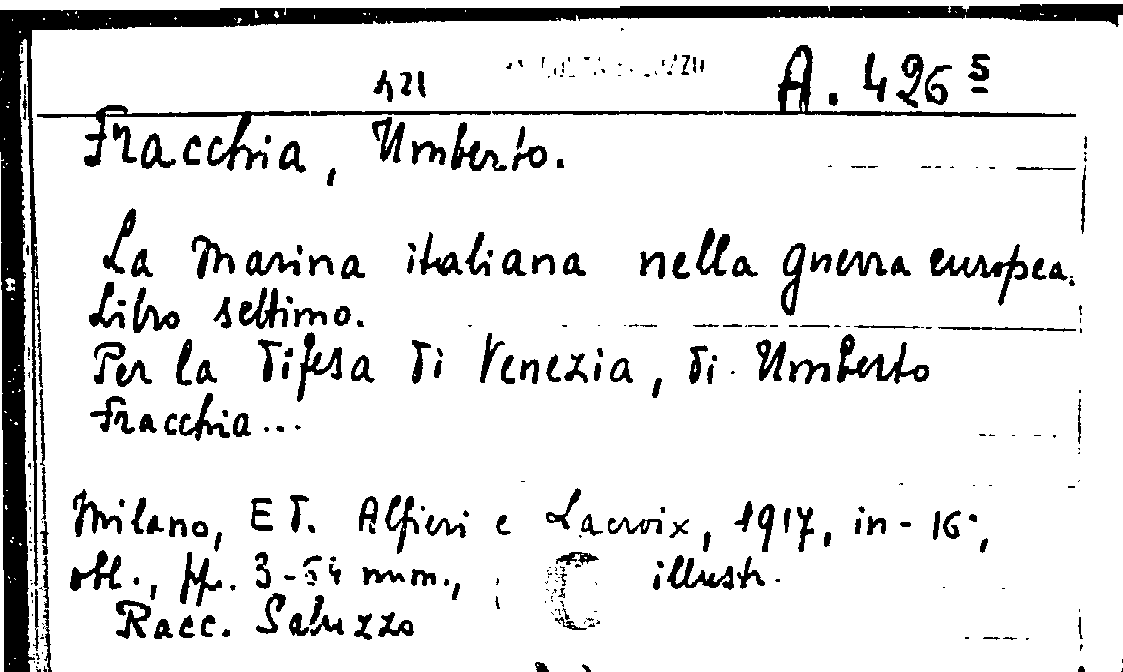 421 A. 426 s
Fracchia, Umberto.
La Marina italiana nella guerra europea.
Libro settimo.
Per la Difesa Di Venezia, Di Umberto
Fracchia...
Milano, ED. Alfieri e Lacroix, 1917, in-16°,
obl., pp. 3-54 num., illustr.
Racc. Saluzzo